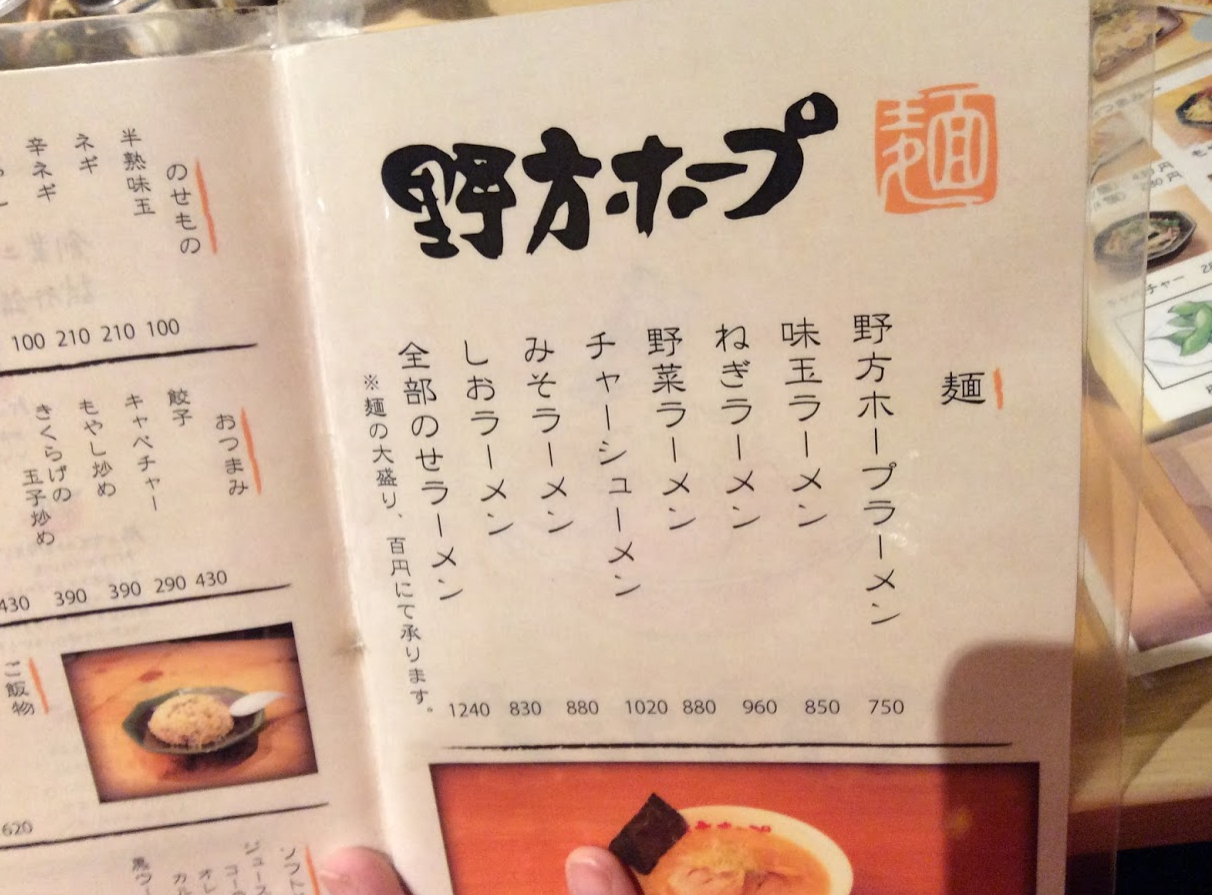 野方ホープ
麺
麺
野方ホープラーメン
味玉ラーメン
ねぎラーメン
野菜ラーメン
チャーシューメン
みそラーメン
しおラーメン
全部のせラーメン
※麺の大盛り、百円にて承ります。
1240 830 880 1020 880 960 850 750
のせもの
半熟味玉
ネギ
辛ネギ
100 210 210 100
おつまみ
餃子
キャベチャー
もやし炒め
きくらげの
玉子炒め
430 390 390 290 430
ご飯物
620
ソフト
ジュース